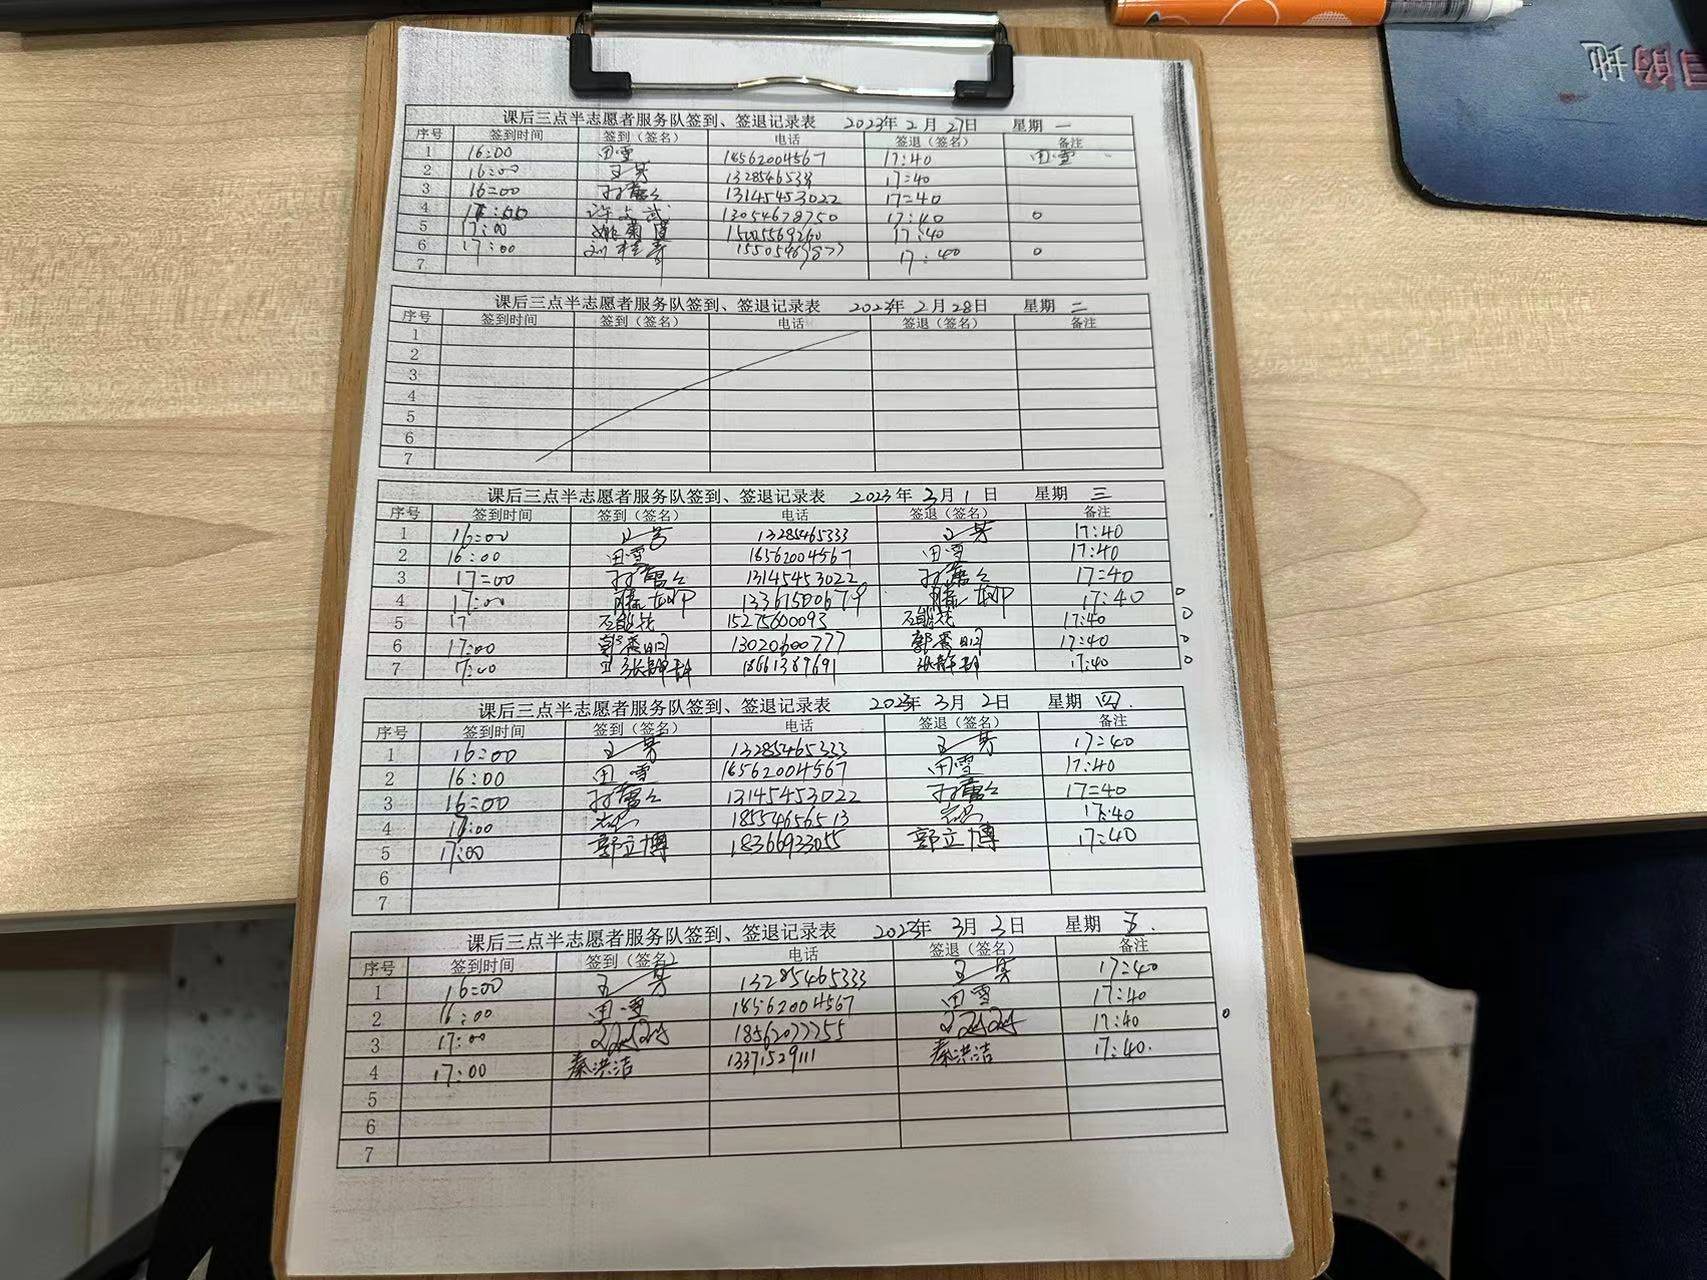 目的地
课后三点半志愿者服务队签到、签退记录表 2023年2月27日 星期 一
序号 签到时间 签到（签名） 电话 签退（签名） 备注
1 16:00 田雪 18562004567 17:40 田雪
2 16:00 王芳 17:40
3 16:00 13145453022 17:40
4 13054678750 17:40
5 17:00 15005569260 17:40
6 17:00 17:40
7
课后三点半志愿者服务队签到、签退记录表 2023年2月28日 星期 二
序号 签到时间 签到（签名） 电话 签退（签名） 备注
1
2
3
4
5
6
7
课后三点半志愿者服务队签到、签退记录表 2023年3月1日 星期 三
序号 签到时间 签到（签名） 电话 签退（签名） 备注
1 16:00 王芳 13285465333 王芳 17:40
2 16:00 田雪 18562004567 田雪 17:40
3 17:00 13145453022 17:40
4 17:00 13361500679 17:40
5 17 15275600093 17:40
6 17:00 13020600777 17:40
7 17:00 18661389691 17:40
课后三点半志愿者服务队签到、签退记录表 2023年3月2日 星期 四
序号 签到时间 签到（签名） 电话 签退（签名） 备注
1 16:00 王芳 13285465333 王芳 17:40
2 16:00 田雪 18562004567 田雪 17:40
3 16:00 13145453022 17:40
4 17:00 18554656513 17:40
5 17:00 郭立博 18366933055 郭立博 17:40
6
7
课后三点半志愿者服务队签到、签退记录表 2023年3月3日 星期 五
序号 签到时间 签到（签名） 电话 签退（签名） 备注
1 16:00 王芳 13285465333 王芳 17:40
2 16:00 田雪 18562004567 田雪 17:40
3 17:00 17:40
4 17:00 秦洪洁 13371529111 秦洪洁 17:40.
5
6
7